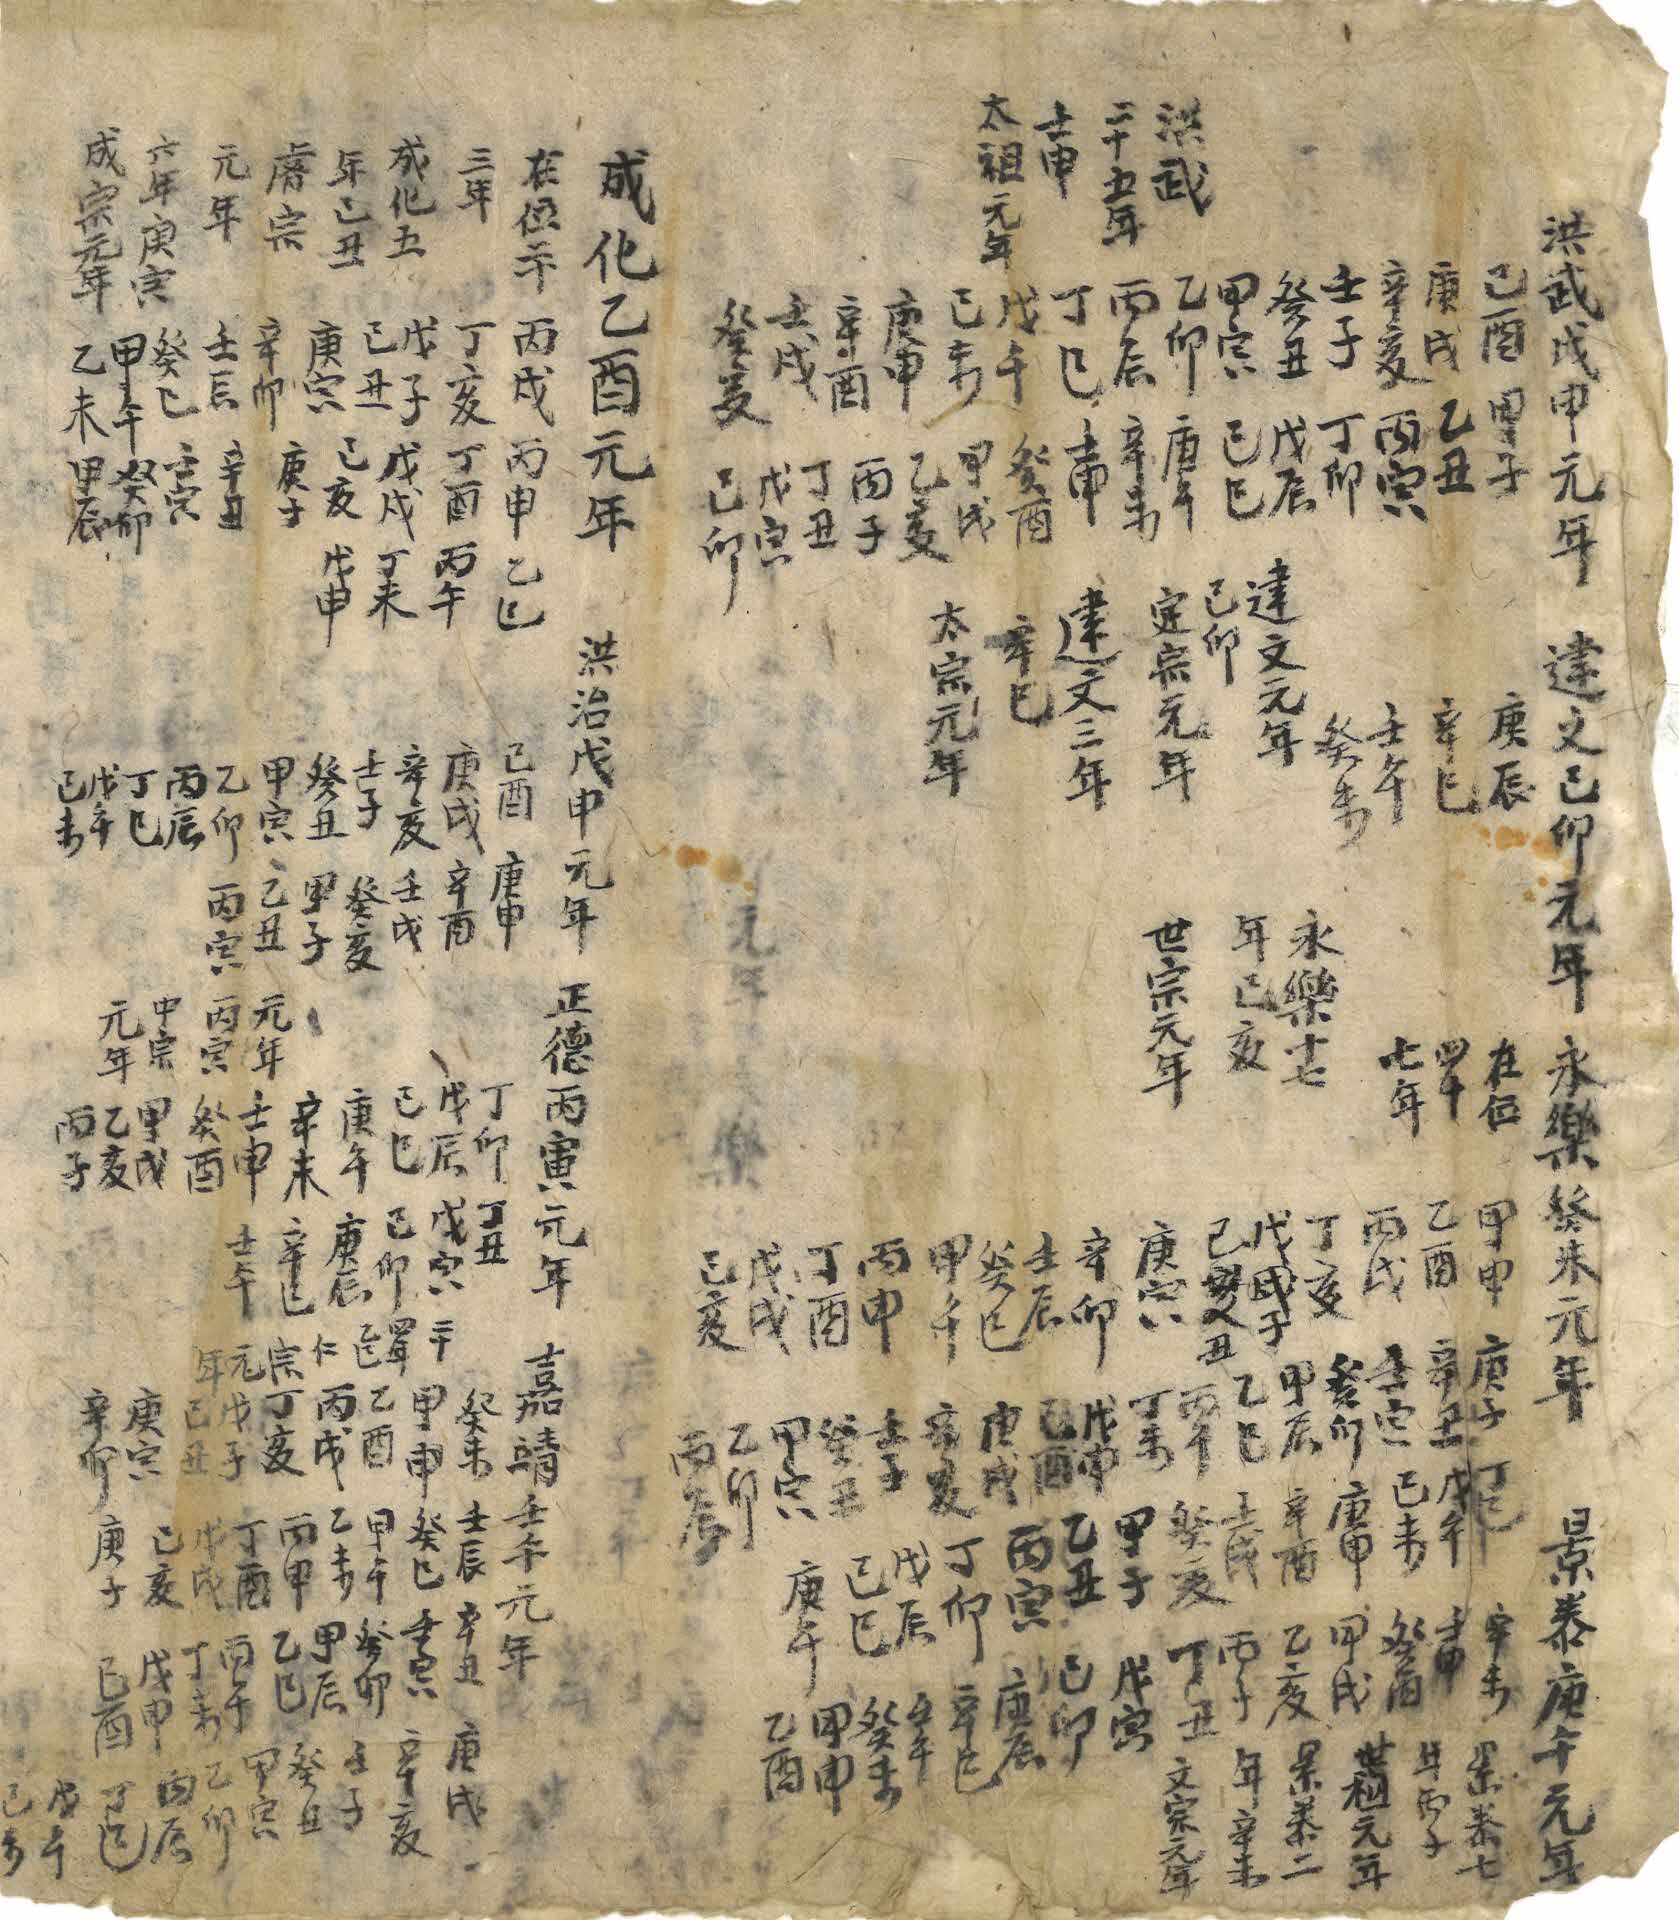 洪武戊申元年 建文己卯元年 永樂癸未元年 景泰庚午元年
洪武
二十五年
壬申
太祖元年
己酉 甲子
庚戌 乙丑
辛亥 丙寅
壬子 丁卯
癸丑 戊辰
甲寅 己巳
乙卯 庚午
丙辰 辛未
丁巳 壬申
戊午 癸酉
己未 甲戌
庚申 乙亥
辛酉 丙子
壬戌 丁丑
癸亥 戊寅
己卯
庚辰
辛巳
壬午
癸未
建文元年
己卯
定宗元年
建文三年
辛巳
太宗元年
在位
四十
七年
永樂十七
年己亥
世宗元年
甲申 庚子 丁巳
乙酉 辛丑 戊午
丙戌 壬寅 己未
丁亥 癸卯 庚申
戊子 甲辰 辛酉
己丑 乙巳 壬戌
庚寅 丙午 癸亥
辛卯 丁未 甲子
壬辰 戊申 乙丑
癸巳 己酉 丙寅
甲午 庚戌 丁卯
丙申 辛亥 戊辰
丁酉 壬子 己巳
戊戌 癸丑 庚午
己亥 甲寅
乙卯
丙辰
辛未
壬申
癸酉
甲戌
乙亥
丙子
丁丑
戊寅
己卯
庚辰
辛巳
壬午
癸未
甲申
乙酉
景泰七
年丙子
世祖元年
景泰二
年辛未
文宗元年
成化乙酉元年 洪治戊申元年 正德丙寅元年 嘉靖壬午元年
在位二十
三年
成化五
年己丑
睿宗
元年
六年庚寅
成宗元年
丙戌 丙申 乙巳
丁亥 丁酉 丙午
戊子 戊戌 丁未
己丑 己亥 戊申
庚寅 庚子
辛卯 辛丑
壬辰 壬寅
癸巳 癸卯
甲午 甲辰
乙未
己酉 庚申
庚戌 辛酉
辛亥 壬戌
壬子 癸亥
癸丑 甲子
甲寅 乙丑
乙卯 丙寅
丙辰
丁巳
戊午
己未
元年
丙寅
中宗
元年
丁卯 丁丑
戊辰 戊寅
己巳 己卯
庚午 庚辰
辛未 辛巳
壬申 壬午
癸酉
甲戌
乙亥
丙子
二十
四年
乙巳
仁
宗
元
年
癸未 壬辰 辛丑 庚戌
甲申 癸巳 壬寅 辛亥
乙酉 甲午 癸卯 壬子
丙戌 乙未 甲辰 癸丑
丁亥 丙申 乙巳 甲寅
戊子 丁酉 丙午 乙卯
己丑 戊戌 丁未 丙辰
庚寅 己亥 戊申 丁巳
辛卯 庚子 己酉 戊午
己未